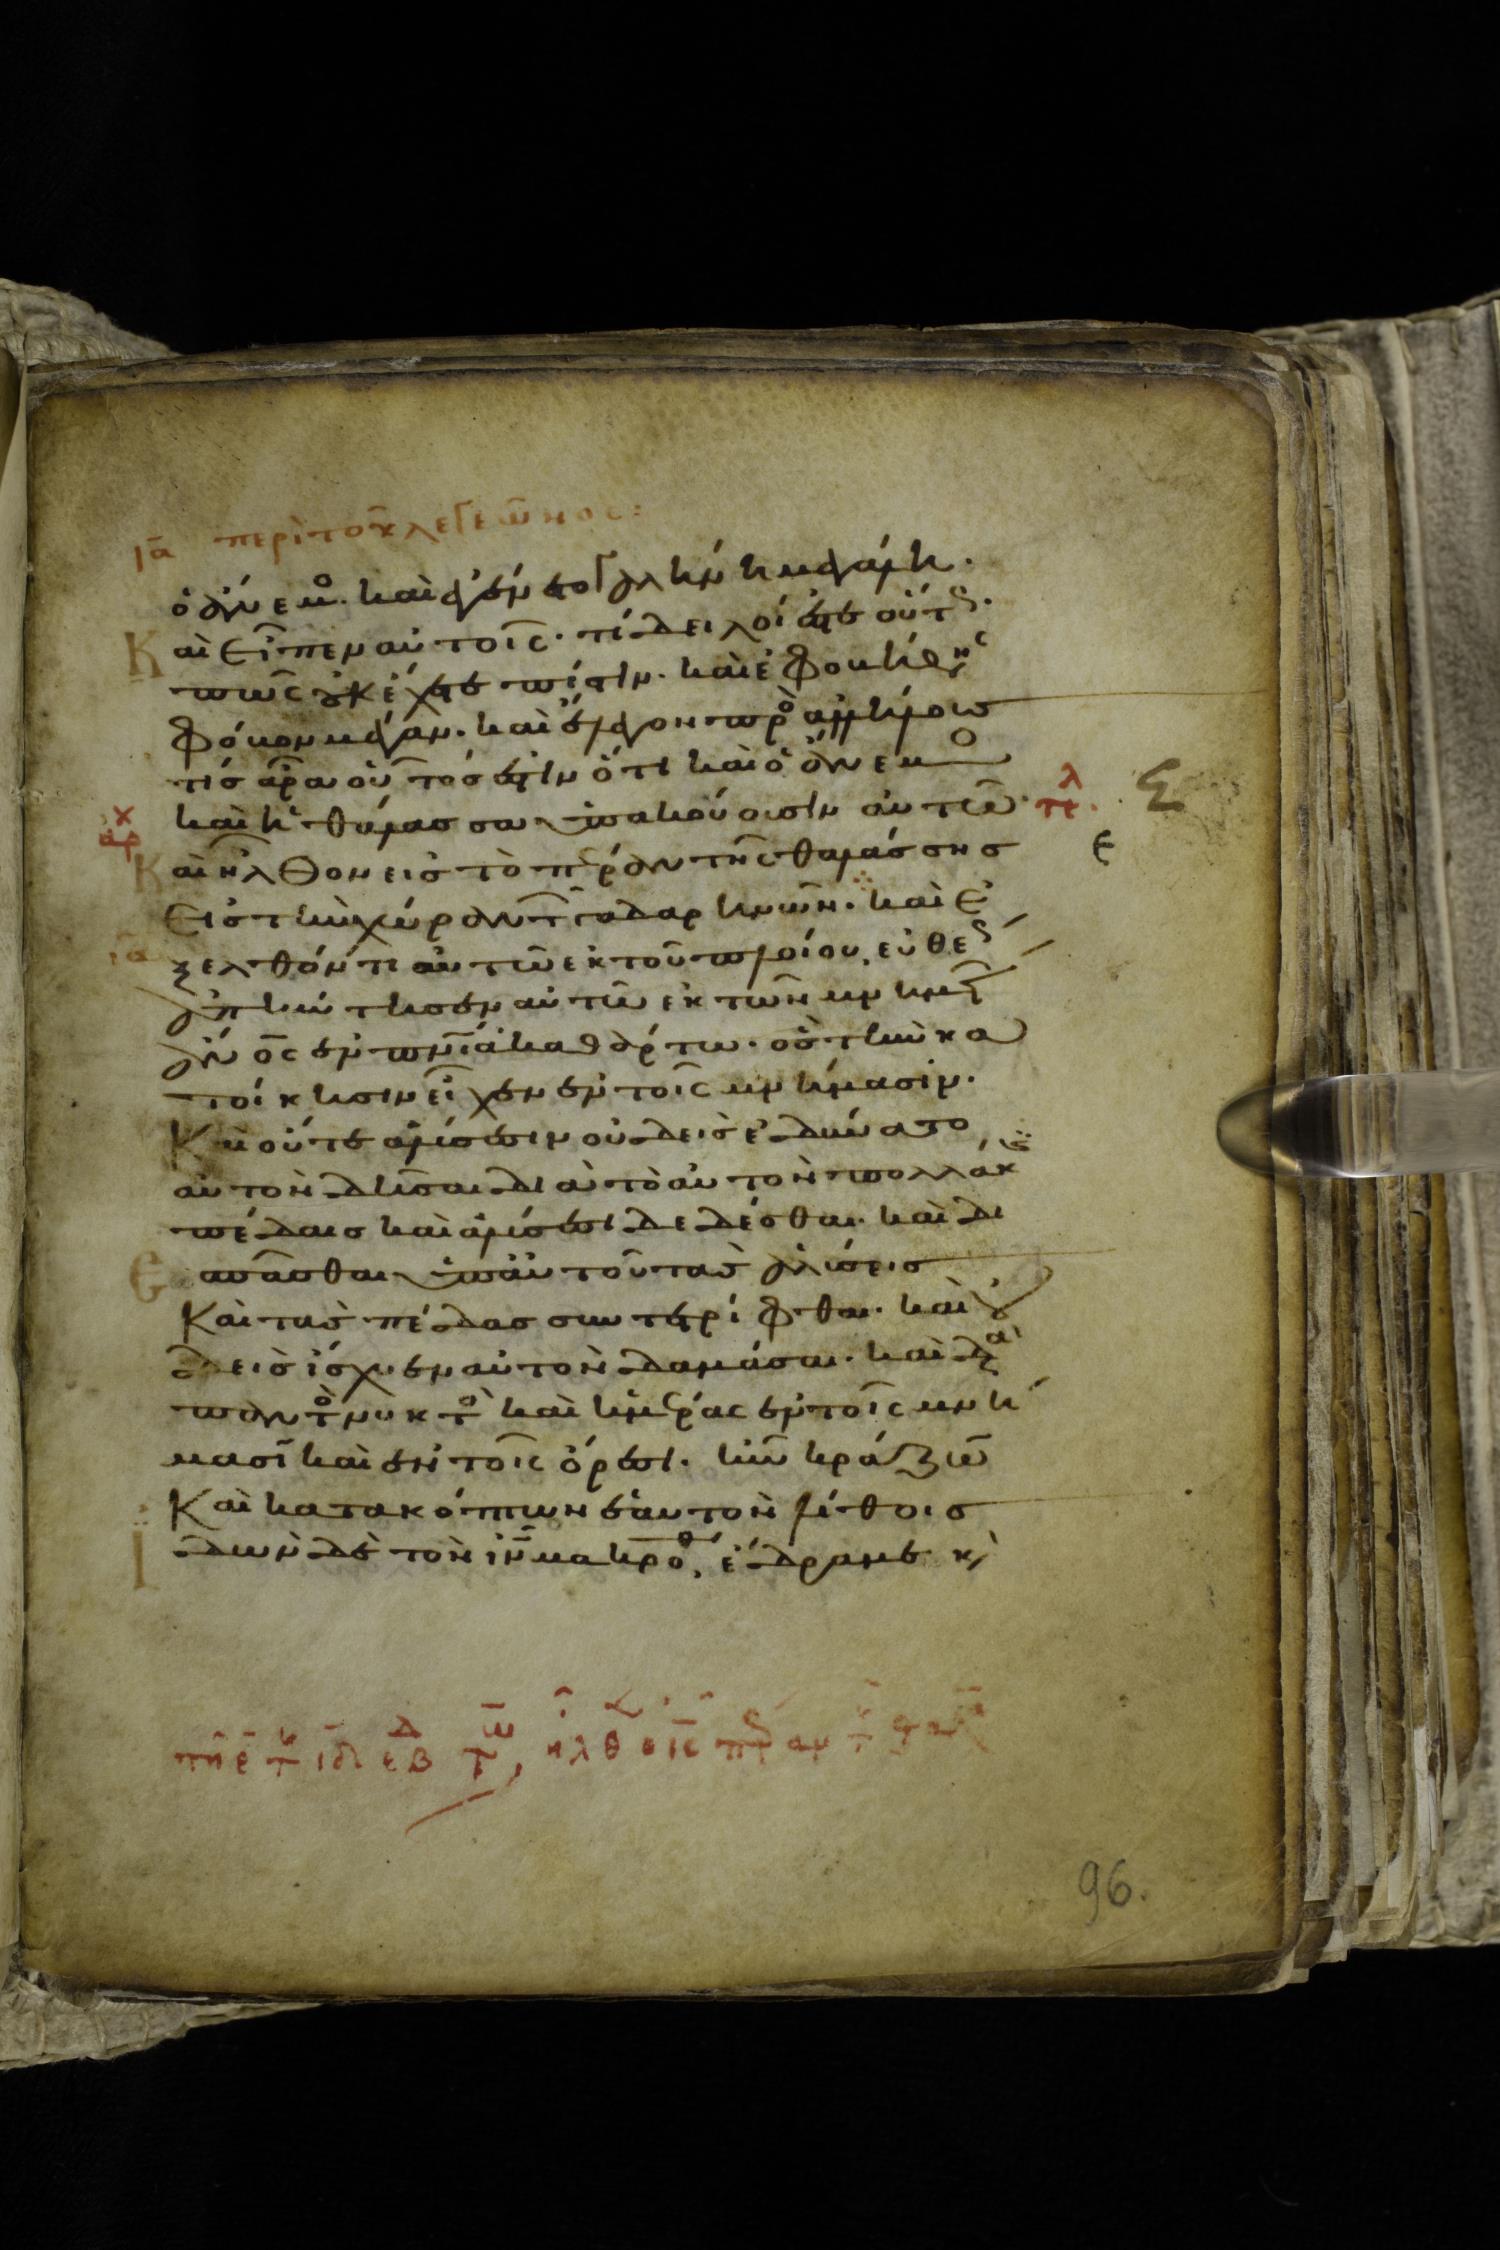 ια περὶ τοῦ λεγεῶνος:
ὁ ἄνεμο. καὶ ἐγένετο γαλήνη μεγάλη.
Καὶ εἶπεν αὐτοῖς. τί δειλοί ἐστε οὕτως.
πῶς οὐκ ἔχετε πίστιν. καὶ ἐφοβήθησ
φόβον μέγαν. καὶ ἔλεγον πρὸ ἀλλήλους
τίς ἄρα οὗτός ἐστιν ὅτι καὶ ὁ ἄνεμο
καὶ ἡ θάλασσα ὑπακούουσιν αὐτῶ. τε λ
αρχ Καὶ ἦλθον εἰς τὸ πέραν τῆς θαλάσσης ε
εἰς τὴν χώραν τ γαδαρηνῶν. καὶ ἐ
ια ξελθόντι αὐτῶ ἐκ τοῦ πλοίου, εὐθε
ἀπήντησεν αὐτῶ ἐκ τῶν μνημ
ἄνος ἐν πνι ἀκαθάρτω. ὃς τὴν κα
τοίκησιν εἶχεν ἐν τοῖς μνήμασιν.
Καὶ οὔτε ἁλύσεσιν οὐδεὶς ἐδύνατο
αὐτὸν δῆσαι διὰ τὸ αὐτὸν πολλάκ
πέδαις καὶ ἁλύσεσι δεδέσθαι. καὶ δι
εσπᾶσθαι ὑπ' αὐτοῦ τὰς ἁλύσεις
Καὶ τὰς πέδας συντετρίφθαι. καὶ οὐ
δεὶς ἴσχυεν αὐτὸν δαμάσαι. καὶ δια
παντὸ νυκτὸ καὶ ἡμέρας ἐν τοῖς μνή
μασι καὶ ἐν τοῖς ὄρεσι. ἦν κράζων
Καὶ κατακόπτων ἑαυτὸν λίθοις
Ἰδὼν δὲ τὸν ιν μακροθ, ἔδραμε κ
96.